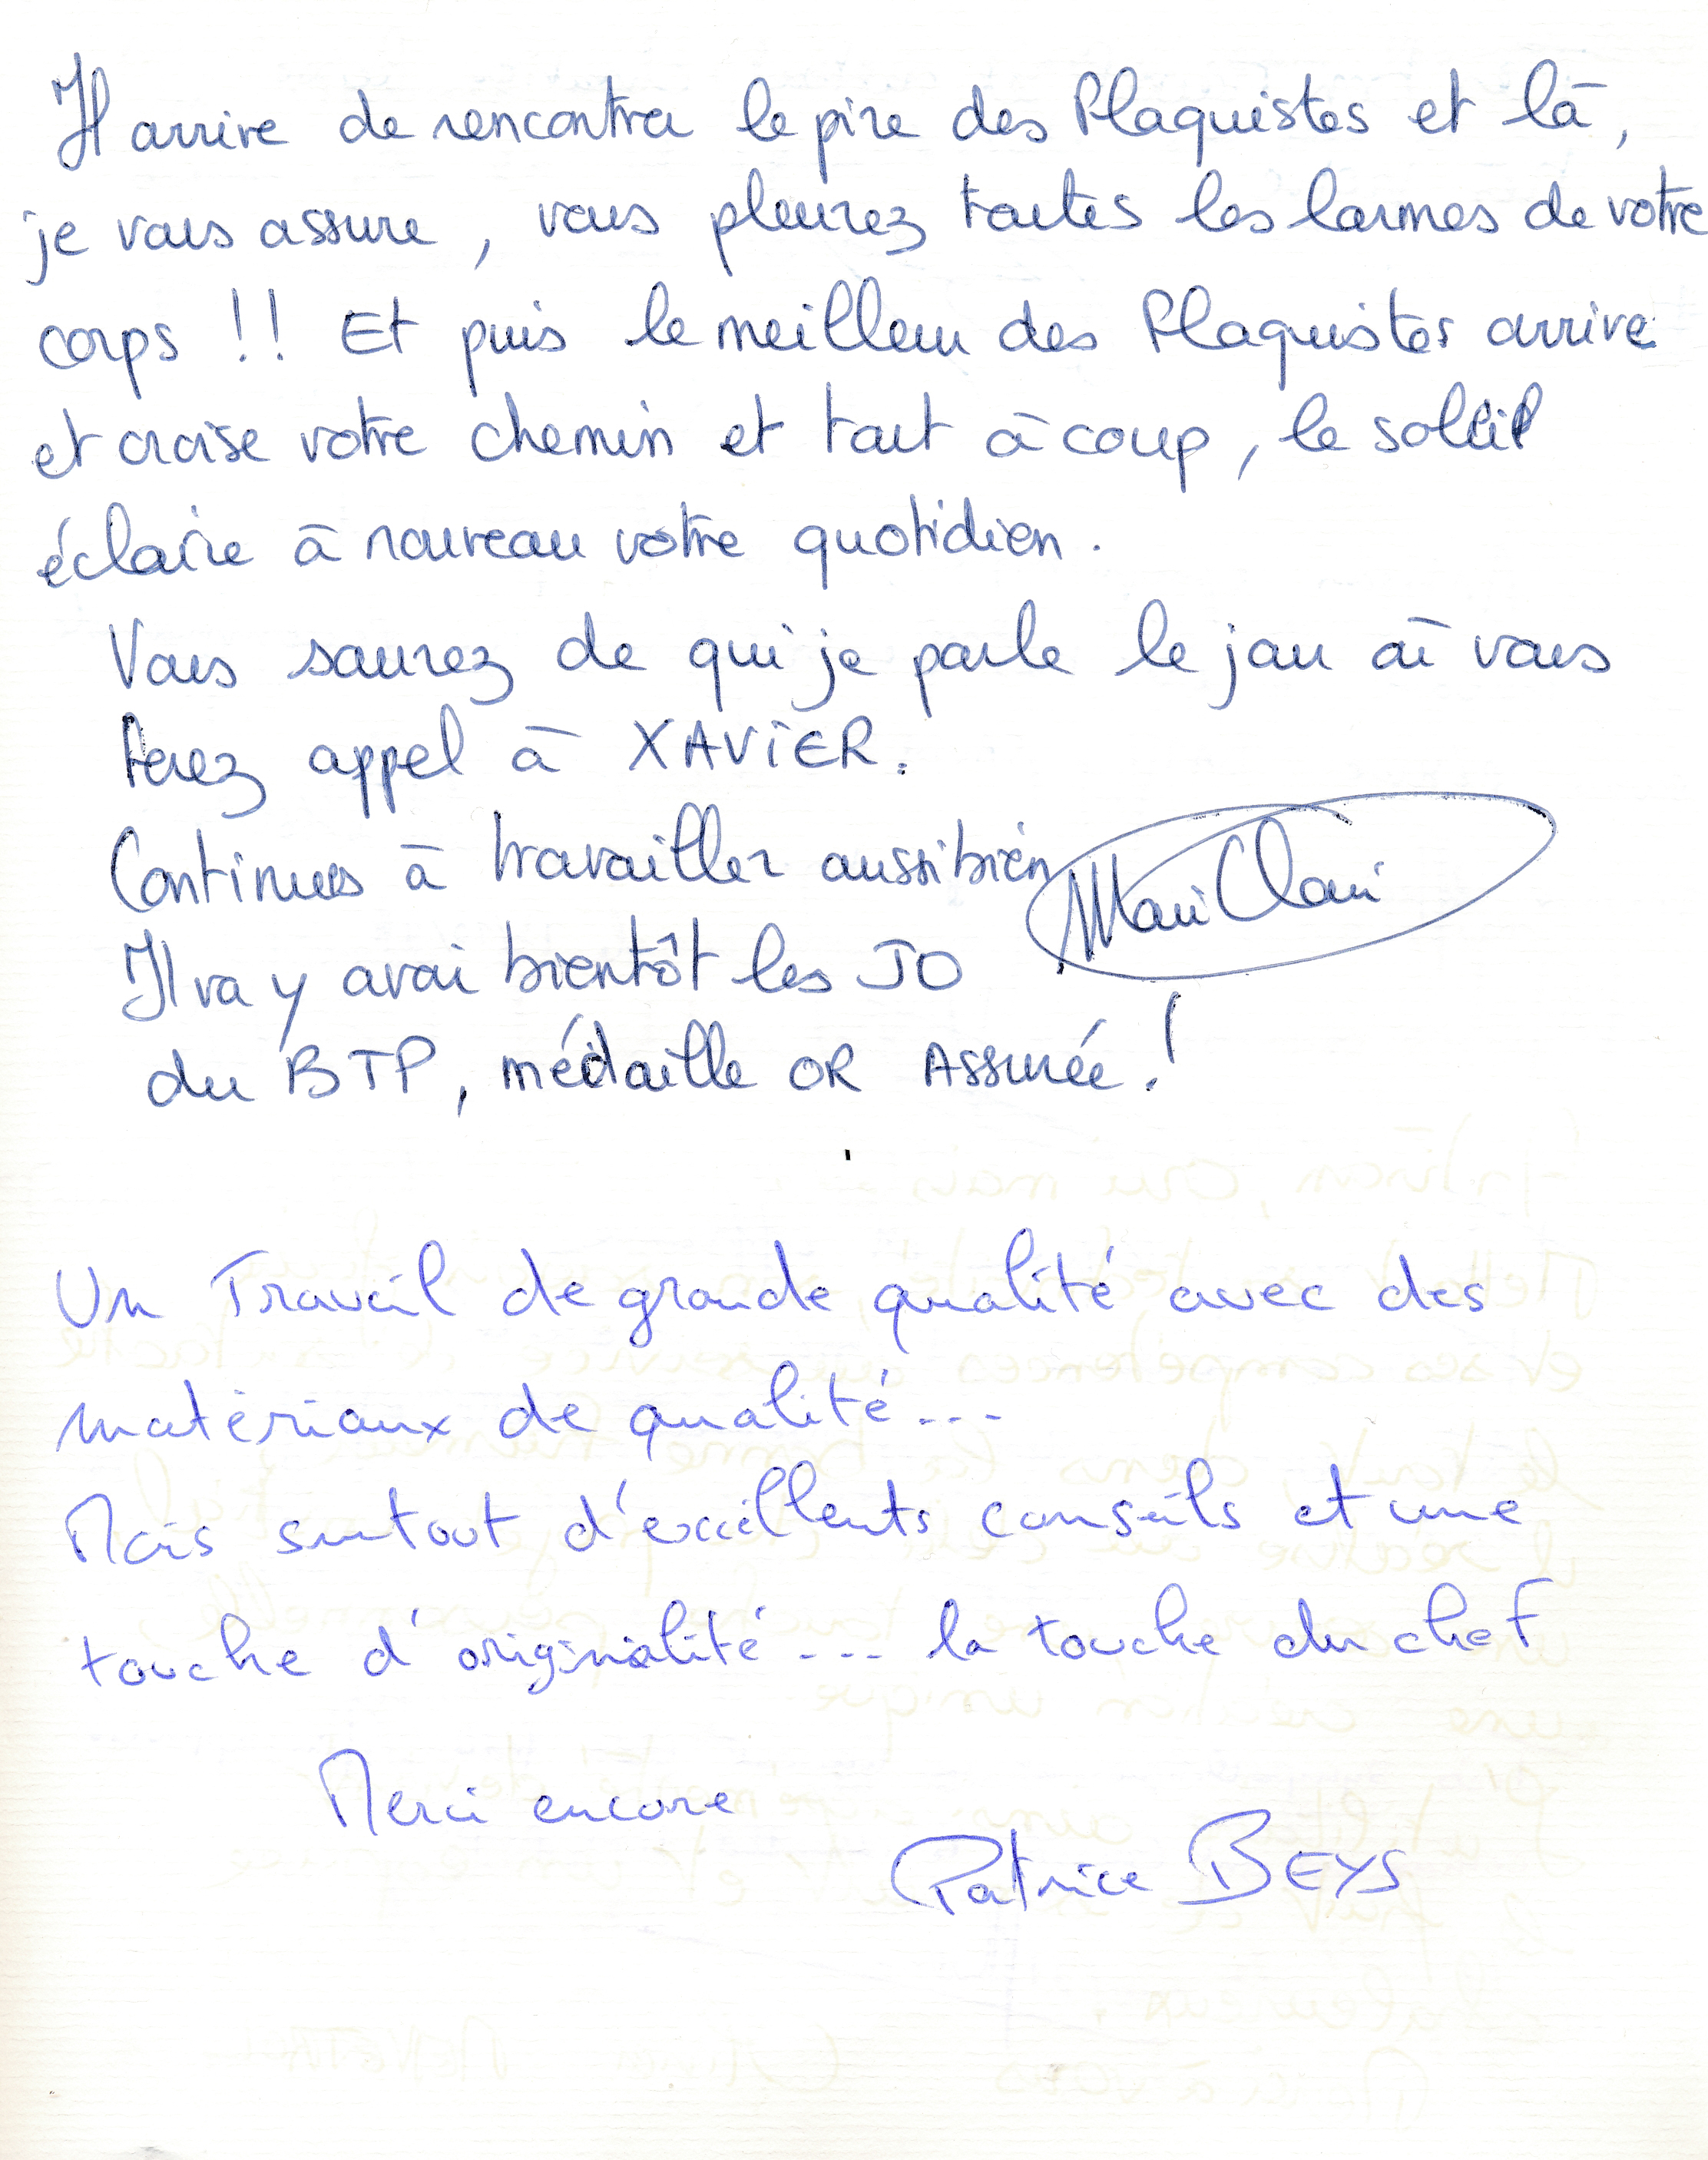 Il arrive de rencontrer le pire des Plaquistes et là,
je vous assure, vous pleurez toutes les larmes de votre
corps !! Et puis le meilleur des Plaquistes arrive
et croise votre chemin et tout à coup, le soleil
éclaire à nouveau votre quotidien.
Vous saurez de qui je parle le jour où vous
ferez appel à XAVIER.
Continues à travailler aussi bien
Marie Claire
Il va y avoir bientôt les JO
du BTP, médaille OR ASSurée !
Un Travail de grande qualité avec des
matériaux de qualité...
Mais surtout d'excellents conseils et une
touche d'originalité... la touche du chef
Merci encore
Patrice BEYS